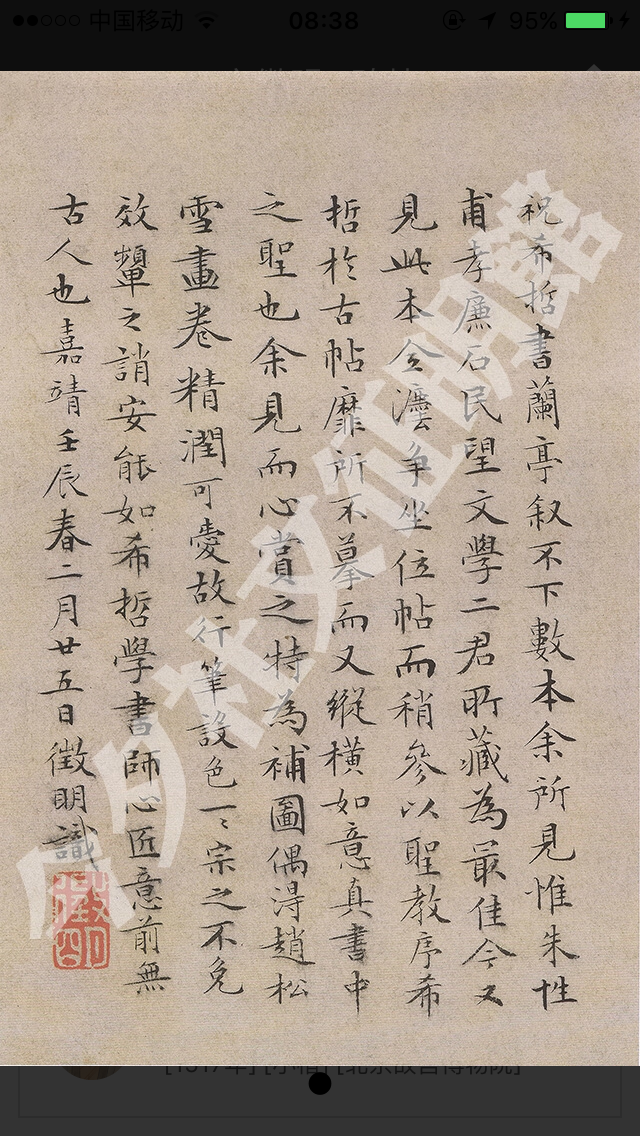 中国移动 08:38 95%
祝希哲書蘭亭叙不下數本余所見惟朱性
甫孝廉石民望文學二君所藏為最佳今又
見此本全澐爭坐位帖而稍參以聖教序希
哲於古帖靡所不摹而又縱橫如意真書中
之聖也余見而心賞之特為補圖偶得趙松
雪畫卷精潤可愛故行筆設色一〻宗之不免
效顰之誚安能如希哲學書師心匠意前無
古人也嘉靖壬辰春二月廿五日徵明識
徵明
夕社文徵明館
[北京故宫博物院]